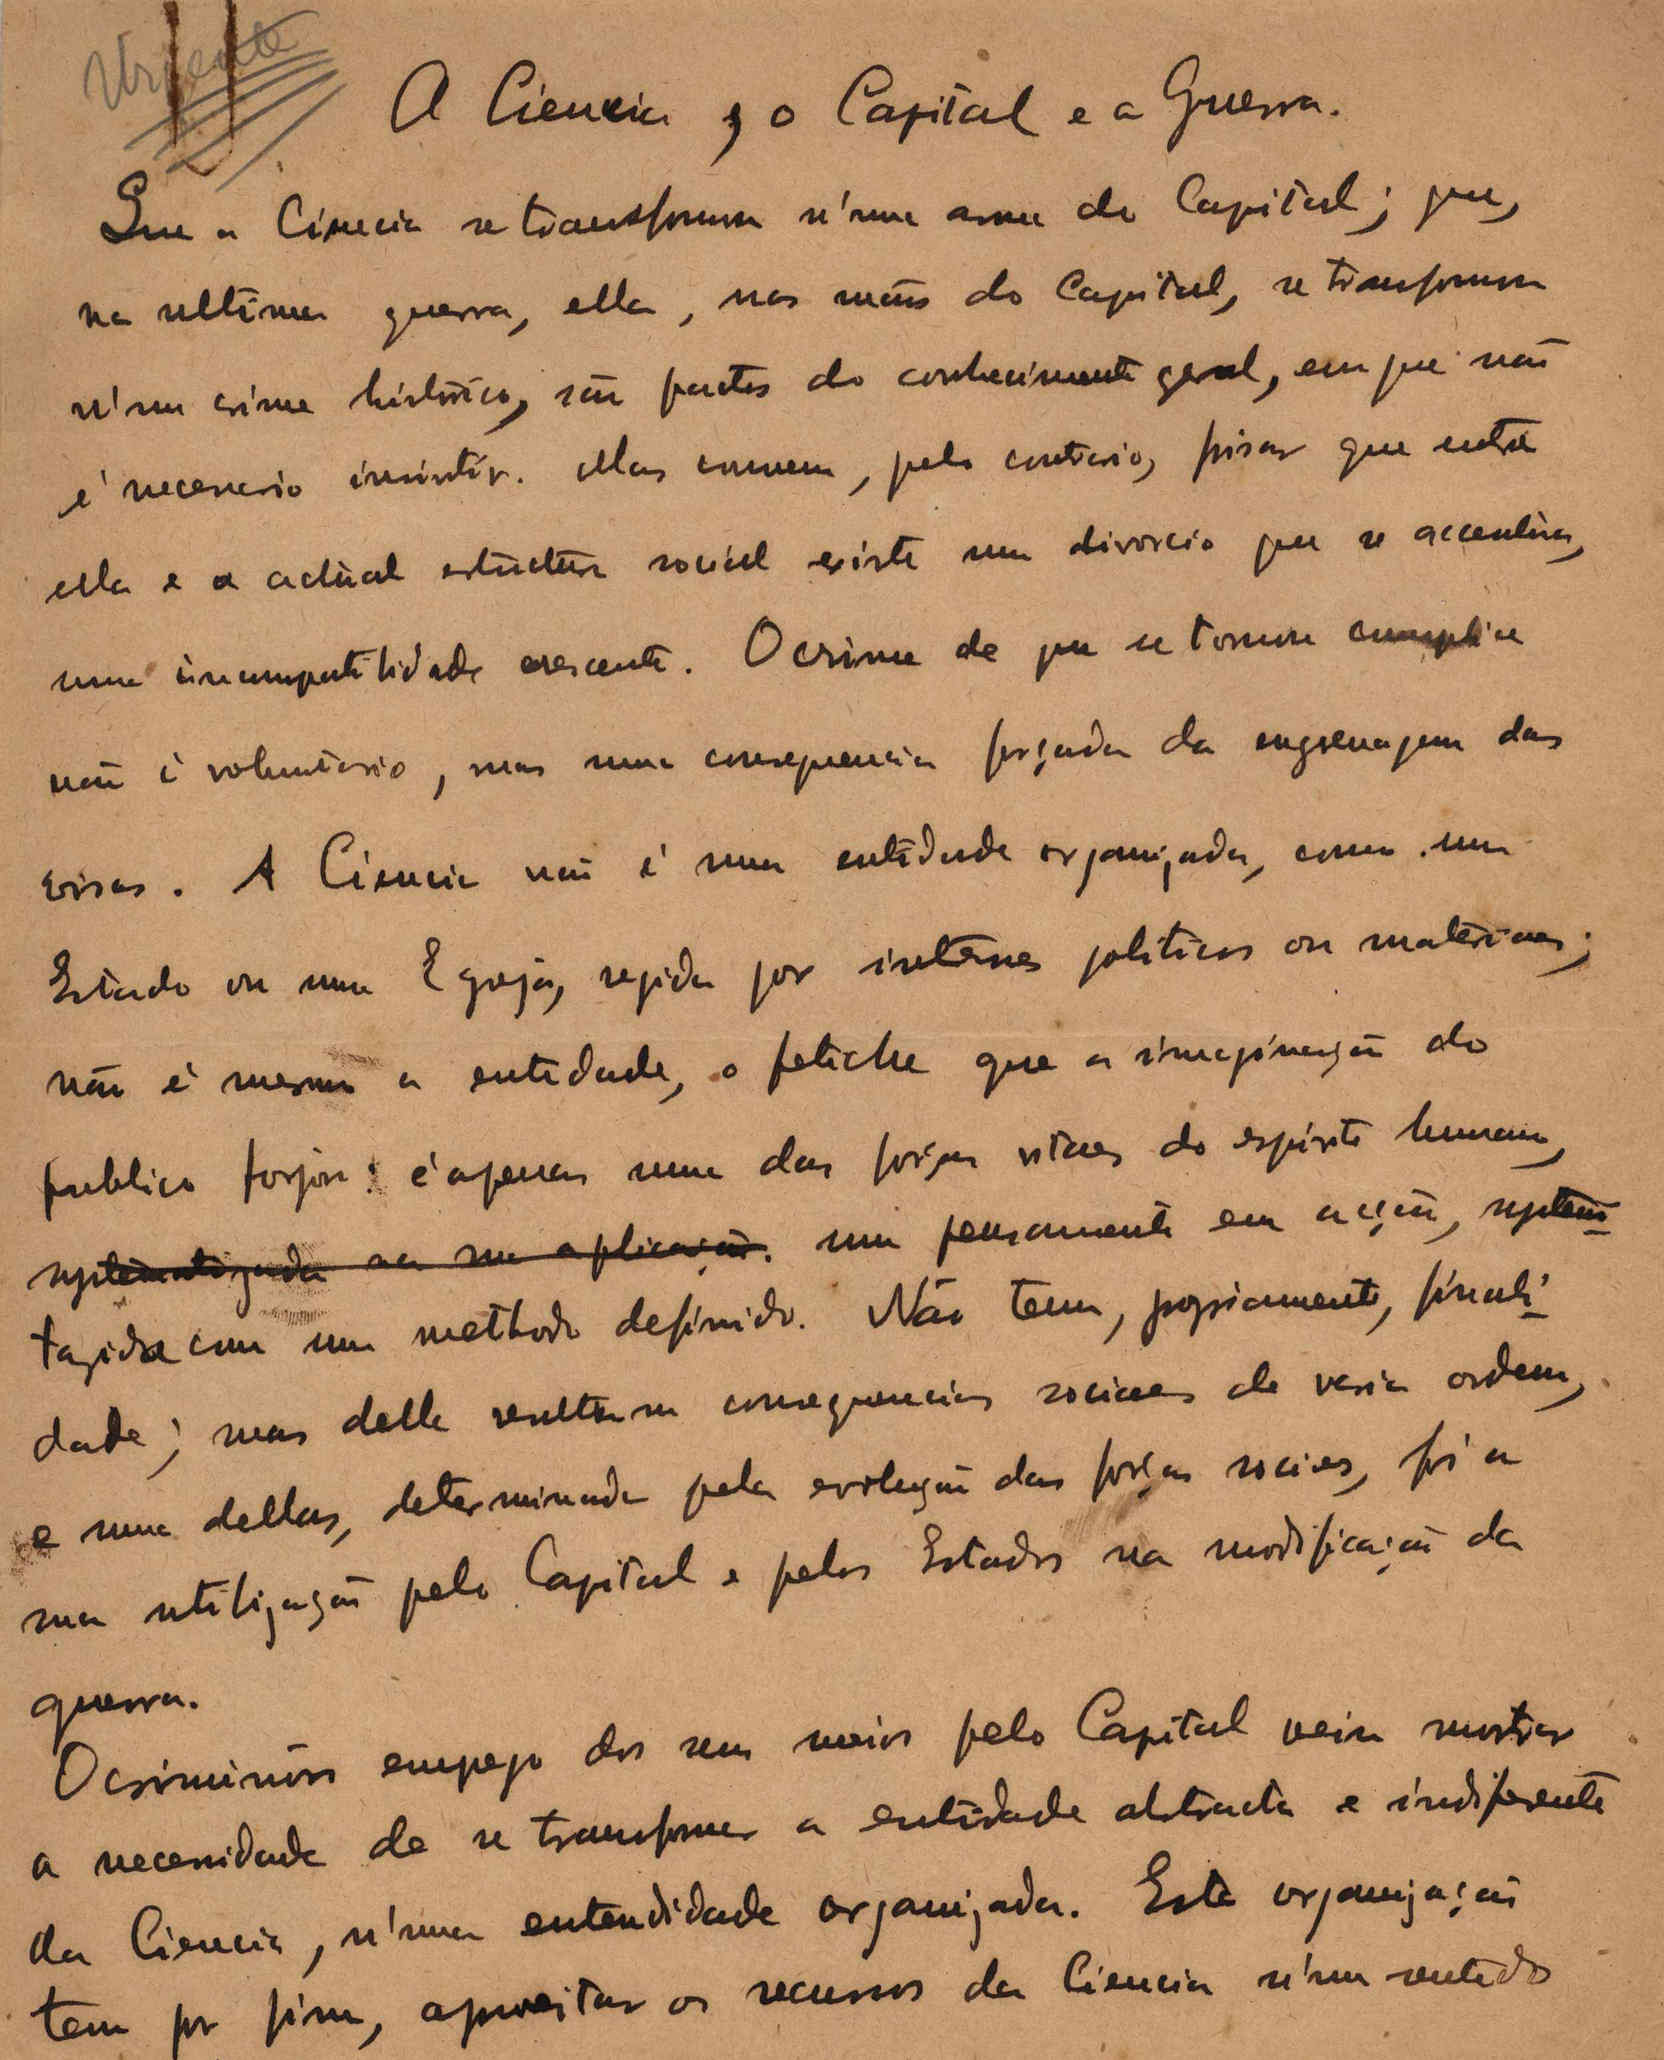 Urgente
A Ciencia, o Capital e a Guerra.
Que a Ciencia se transforma n'uma arma do Capital; que,
na ultima guerra, ella, nas mãos do Capital, se transforma
n'um crime historico, são factos do conhecimento geral, em que não
é necessario insistir. Mas convem, pelo contrario, frisar que entre
ella e a actual estructura social existe um divorcio que se accentúa,
uma incompatibilidade crescente. O crime de que se tornou cumplice
não é voluntario, mas uma consequencia forçada da engrenagem das
coisas. A Ciencia não é uma entidade organizada, como um
Estado ou uma Egreja, regida por interesses politicos ou materiaes;
não é mesmo a entidade, o fetiche que a imaginação do
publico forjou: é apenas uma das forças vitaes do espirito humano,
systematizada na sua aplicação. um pensamento em acção, system
tazida com um methodo definido. Não tem, propriamente, finali
dade; mas della resultam consequencias sociaes de varia ordem,
e uma dellas, determinada pela evolução das forças sociaes, foi a
sua utilização pelo Capital e pelos Estados na modificação da
guerra.
O criminoso emprego dos seus meios pelo Capital veiu mostrar
a necessidade de se transformar a entidade abstracta e indiferente
da Ciencia, n'uma entendidade organizada. Esta organização
tem por fim, aproveitar os recursos da Ciencia n'um sentido